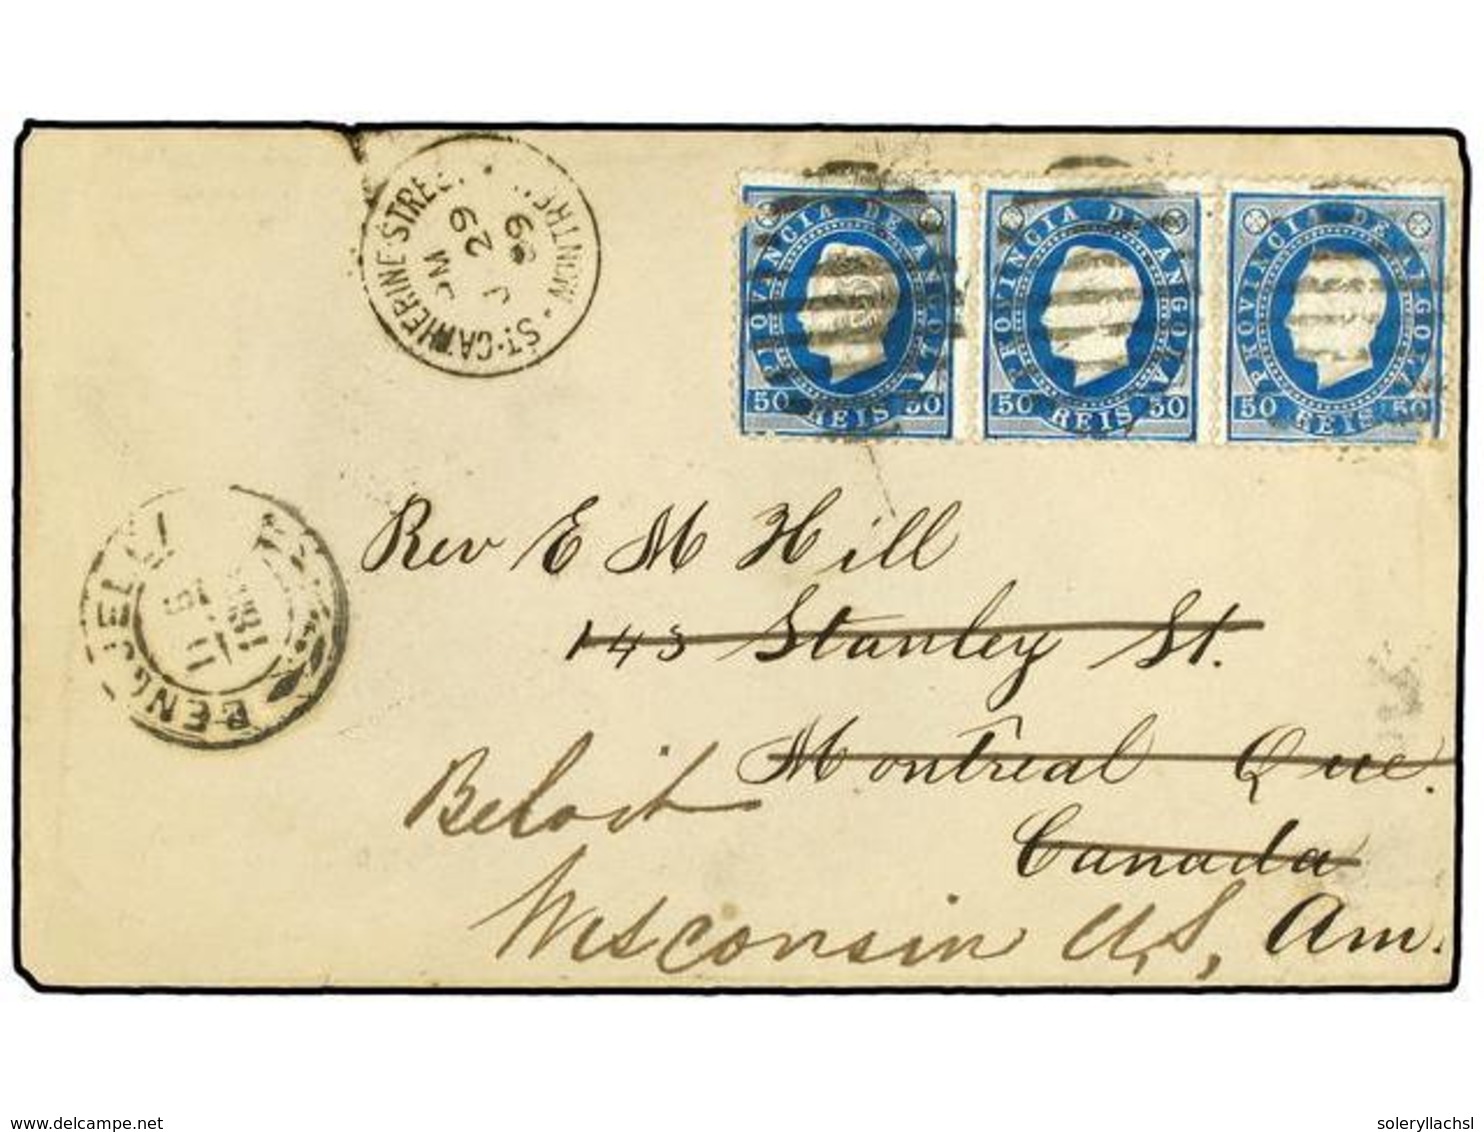 ST. CATHERINE STREET · MONTREAL
PM
J 29
89
PROVINCIA DE ANGOLA
50 REIS 50
PROVINCIA DE ANGOLA
50 REIS 50
PROVINCIA DE ANGOLA
50 REIS 50
BENGUELLA
Rev E M Hill
143 Stanley St.
Montreal Que.
Canada
Beloit
Wisconsin U.S, Am.
www.delcampe.net
soleryllachsl